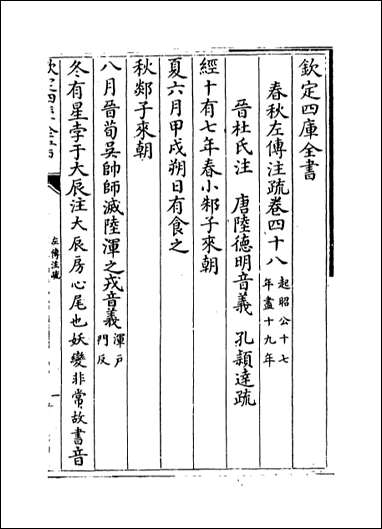 欽定四庫全書
春秋左傳注疏卷四十八
起昭公十七
年盡十九年
晉杜氏注 唐陸德明音義 孔穎達疏
經十有七年春小邾子來朝
夏六月甲戌朔日有食之
秋郯子來朝
八月晉荀吳帥師滅陸渾之戎音義
渾戶
門反
冬有星孛于大辰注大辰房心尾也妖變非常故書音
欽定四庫全書
左傳注疏
一